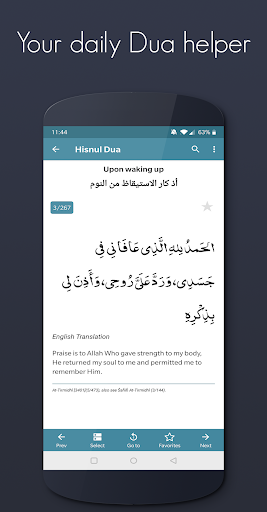 Your daily Dua helper
11:44
63%
Hisnul Dua
Upon waking up
أذكار الاستيقاظ من النوم
3/267
الحَمدُ لِلهِ الَّذِي عَافَانِي فِي
جَسَدِي، وَرَدَّ عَلَيَّ رُوحِي، وَأَذِنَ لِي
بِذِكْرِهِ
English Translation
Praise is to Allah Who gave strength to my body,
He returned my soul to me and permitted me to
remember Him.
Prev
Select
Go to
Favorites
Next